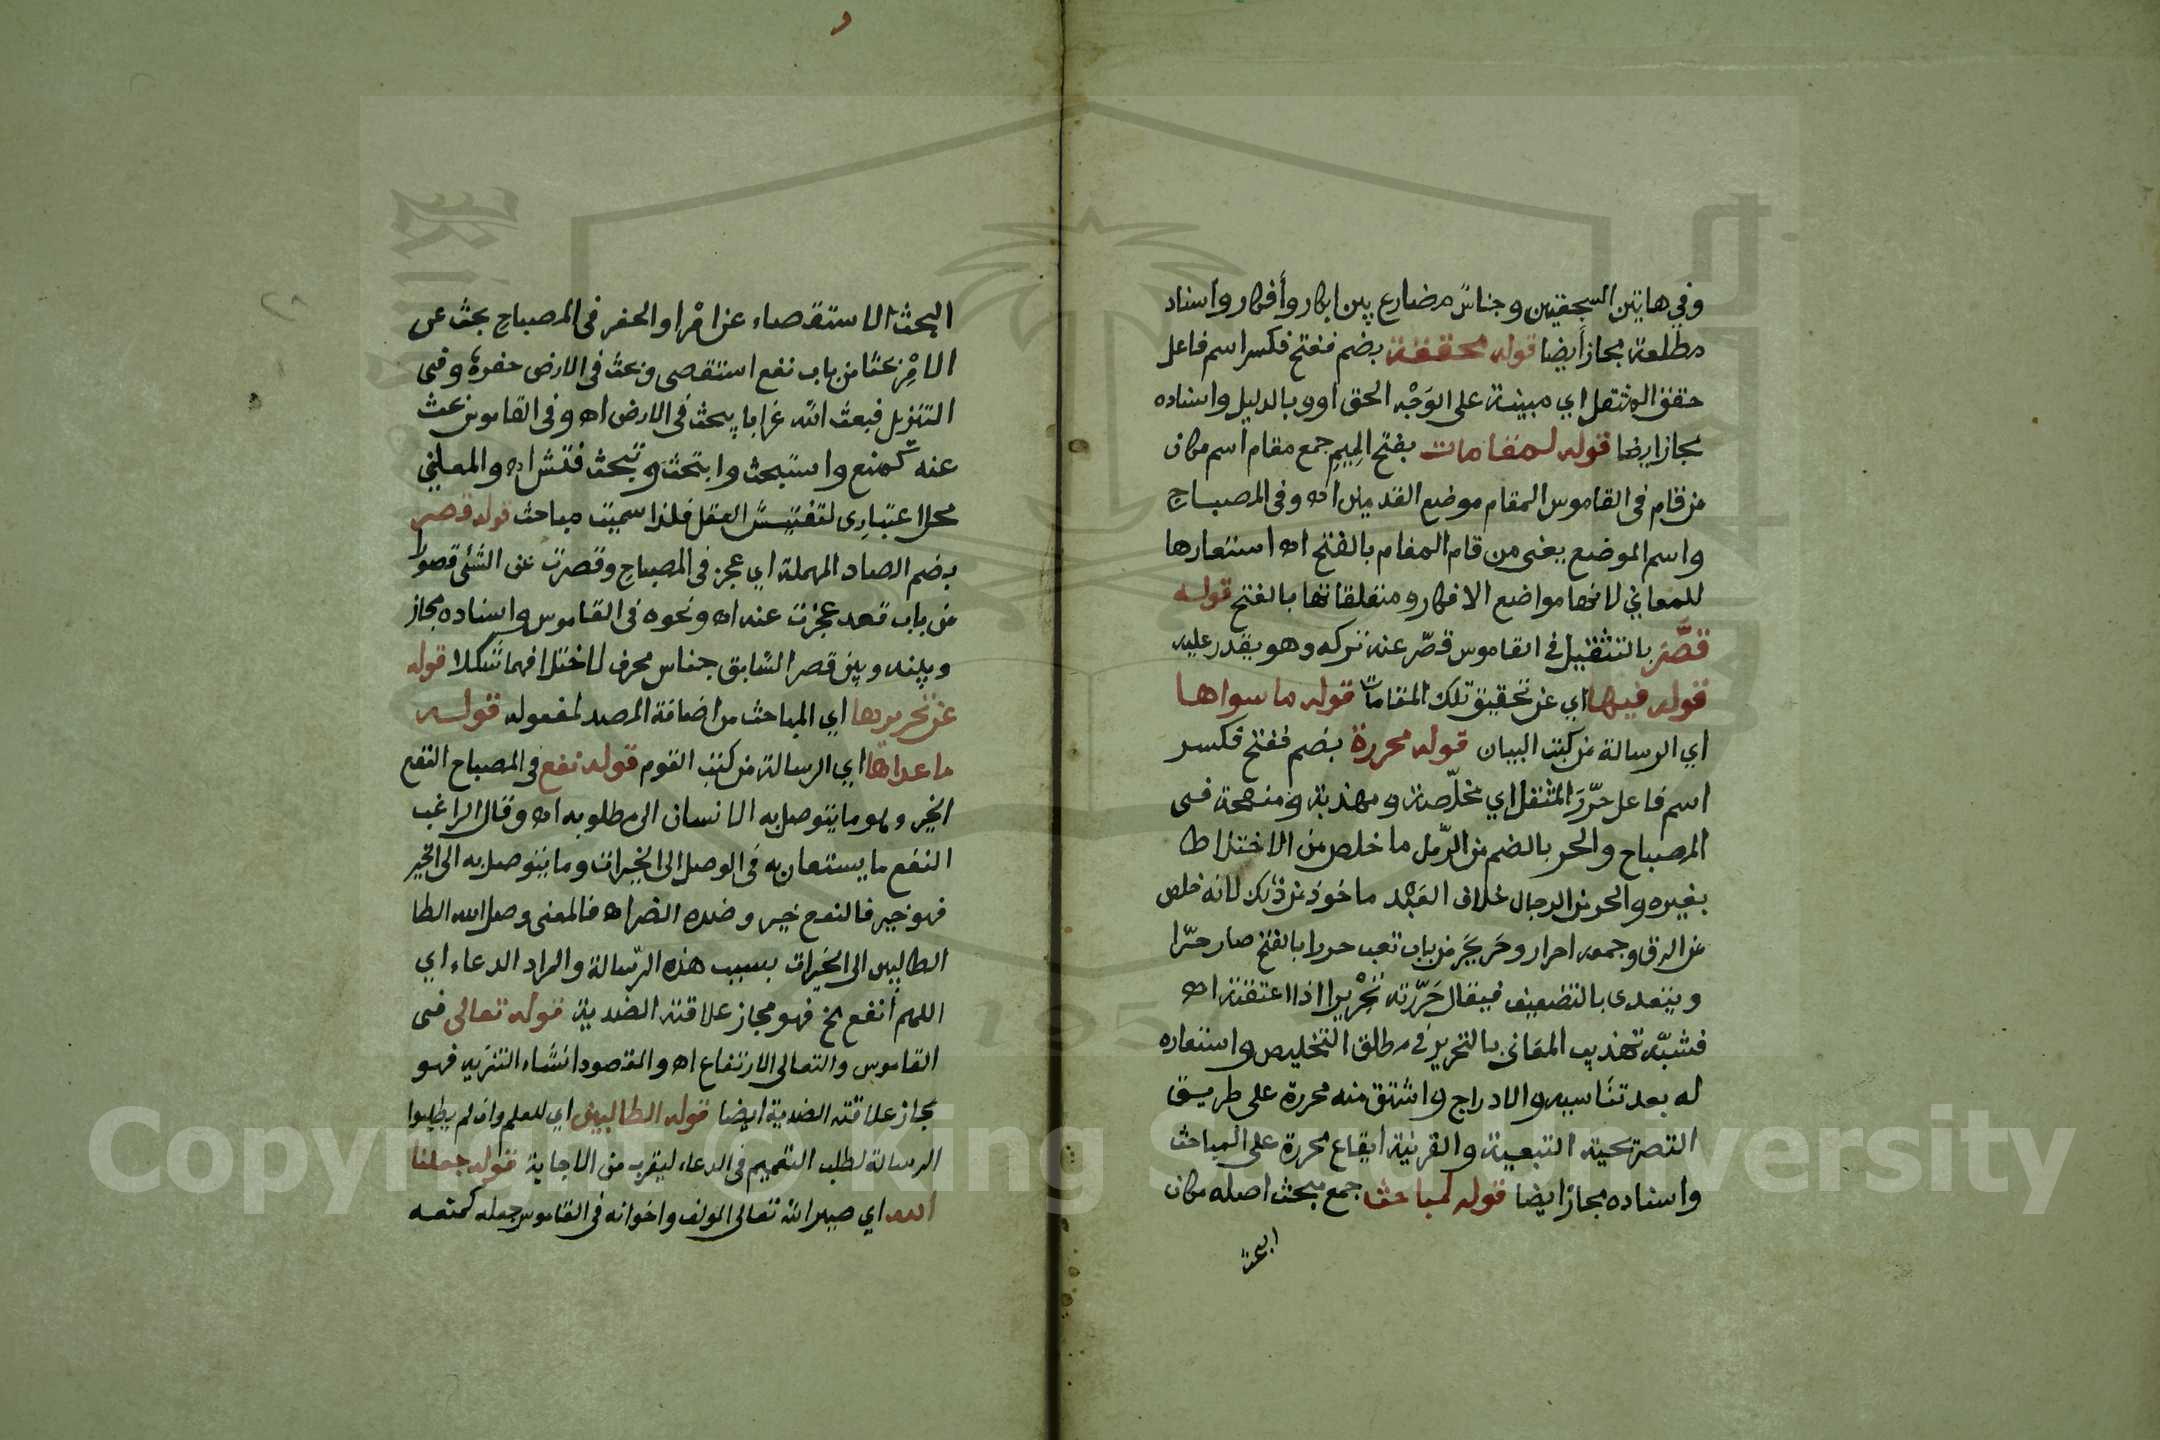 وفي هاتين السجعتين وجناسٌ مضارع بين ابكار وأفكار واسناد
مطلعة مجاز أيضا قوله محققة بضم ففتح فكسر اسم فاعل
حقق المثقل اي مبينة على الوَجْه الحق او وبالدليل واسناده
مجاز ايضا قوله لمقامات بفتح الميم جمع مقام اسم مكان
من قام في القاموس المقام موضع القدمين اه وفي المصباح
واسم الموضع يعني من قام المقام بالفتح اه استعارها
للمعاني لانها مواضع الافكار ومتعلقاتها بالفتح قوله
قصَّر بالتثقيل في القاموس قصّر عنه تركه وهو يقدر عليه
قوله فيها اي عن تحقيق تلك المقامات قوله ما سواها
اي الرسالة من كتب البيان قوله محررة بضم ففتح فكسر
اسم فاعل حرّرَ المثقل اي مخلّصة ومهذبة ومنقحة فى
المصباح والحر بالضم من الرّمل ما خلص من الاختلاط
بغيره والحر من الرجال خلاف العَبْد ماخوذ من ذلك لانه خلص
من الرق وجمعه احرار وحَر يَحَر من باب تعب حررا بالفتح صار حرّا
ويتعدى بالتضعيف فيقال حَرّرته تَحْريرا اذا اعتقته اه
فشبّه تهذيب المعاني بالتحرير في مطلق التخليص واستعاره
له بعد تناسيه والادراج واشتق منه محررة على طريق
التصريحية التبعية والقرينة ايقاع محررة على المباحث
واسناده مجاز ايضا قوله لمباحث جمع مبحث اصله مكان
البحث
البحث الاستقصاء عن امْر او الحفر فى المصباح بحث عن
الامْر بحثا من باب نفع استقصى وبحث فى الارض حفرها وفى
التنزيل فبعث الله غرابا يبحث فى الارض اه وفى القاموس بحث
عنه كمنع واستبحث وابتحث وتبحث فتش اه والمعاني
محل اعتبارى لتفتيش العقل فلذا سميت مباحث قوله قصر
بضم الصاد المهملة اي عجز فى المصباح وقصرت عن الشئ قصورا
من باب قعد عجزت عنه اه ونحوه فى القاموس واسناده مجاز
وبينه وبين قصر السّابق جناس محرف لاختلافهما شكلا قوله
عن تحريرها اي المباحث من اضافة المصدر لمفعوله قوله
ما عداها اي الرسالة من كتب القوم قوله نفع فى المصباح النفع
الخير وهو ما يتوصل به الانسان الى مطلوبه اه وقال الراغب
النفع ما يستعان به فى الوصل الى الخيرات وما يتوصل به الى الخير
فهو خير فالنفع خير وضده الضر اه فالمعنى وصل الله الطا
الطالبين الى الخيرات بسبب هذه الرّسالة والمراد الدعاء اي
اللهم أنفع الخ فهو مجاز علاقته الضدية قوله تعالى فى
القاموس والتعالى الارتفاع اه والمقصود انشاء التنزيه فهو
مجاز علاقته الضدية ايضا قوله الطالبين اي للعلم وان لم يطلبوا
الرسالة لطلب التعميم فى الدعاء ليقرب من الاجابة قوله جعلنا
الله اي صير الله تعالى المولف واخوانه فى القاموس جعله كمنعه